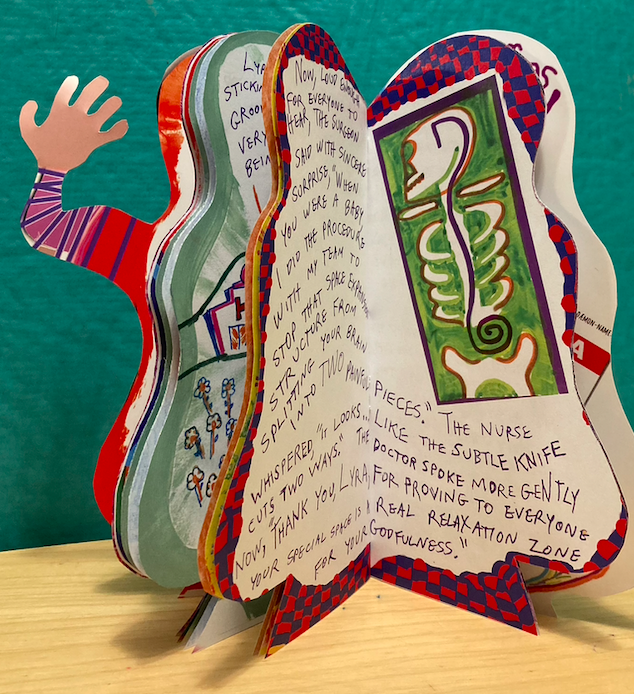 LYR
STICKIN
GROO
VERY
BEIN
NOW, LOUD ENOUGH
FOR EVERYONE TO
HEAR, THE SURGEON
SAID WITH SINCERE
SURPRISE, "WHEN
YOU WERE A BABY
I DID THE PROCEDURE
WITH MY TEAM TO
STOP THAT SPACE
STRUCTURE FROM
SPLITTING YOUR BRAIN
INTO TWO PAINFUL PIECES." THE NURSE
WHISPERED, "IT LOOKS... LIKE THE SUBTLE KNIFE
CUTS TWO WAYS." THE DOCTOR SPOKE MORE GENTLY
NOW, "THANK YOU, LYRA, FOR PROVING TO EVERYONE
YOUR SPECIAL SPACE IS A REAL RELAXATION ZONE
FOR YOUR GODFULNESS."
EMON-NAME
A